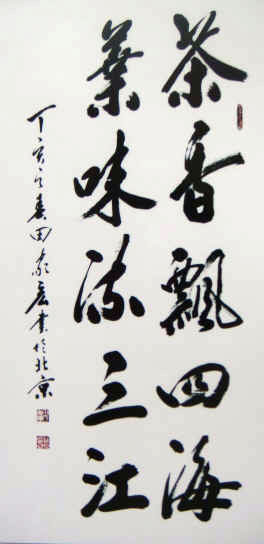 茶香飄四海
葉味流三江
丁亥之春田家宏書於北京